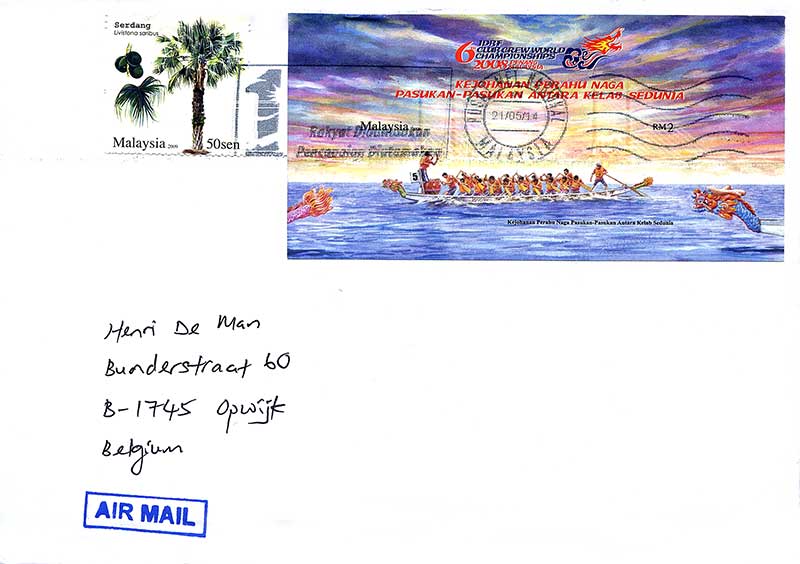 Serdang
Livistona saribus
Malaysia 2009 50sen
6th IDBF
CLUB CREW WORLD
CHAMPIONSHIPS
2008 PENANG
MALAYSIA
KEJOHANAN PERAHU NAGA
PASUKAN-PASUKAN ANTARA KELAB SEDUNIA
Malaysia RM2
21/05/14
MALAYSIA
Rakyat Didahulukan
Pencapaian Diutamakan
1
5
Kejohanan Perahu Naga Pasukan-Pasukan Antara Kelab Sedunia
Henri De Man
Bunderstraat 60
B-1745 Opwijk
Belgium
AIR MAIL